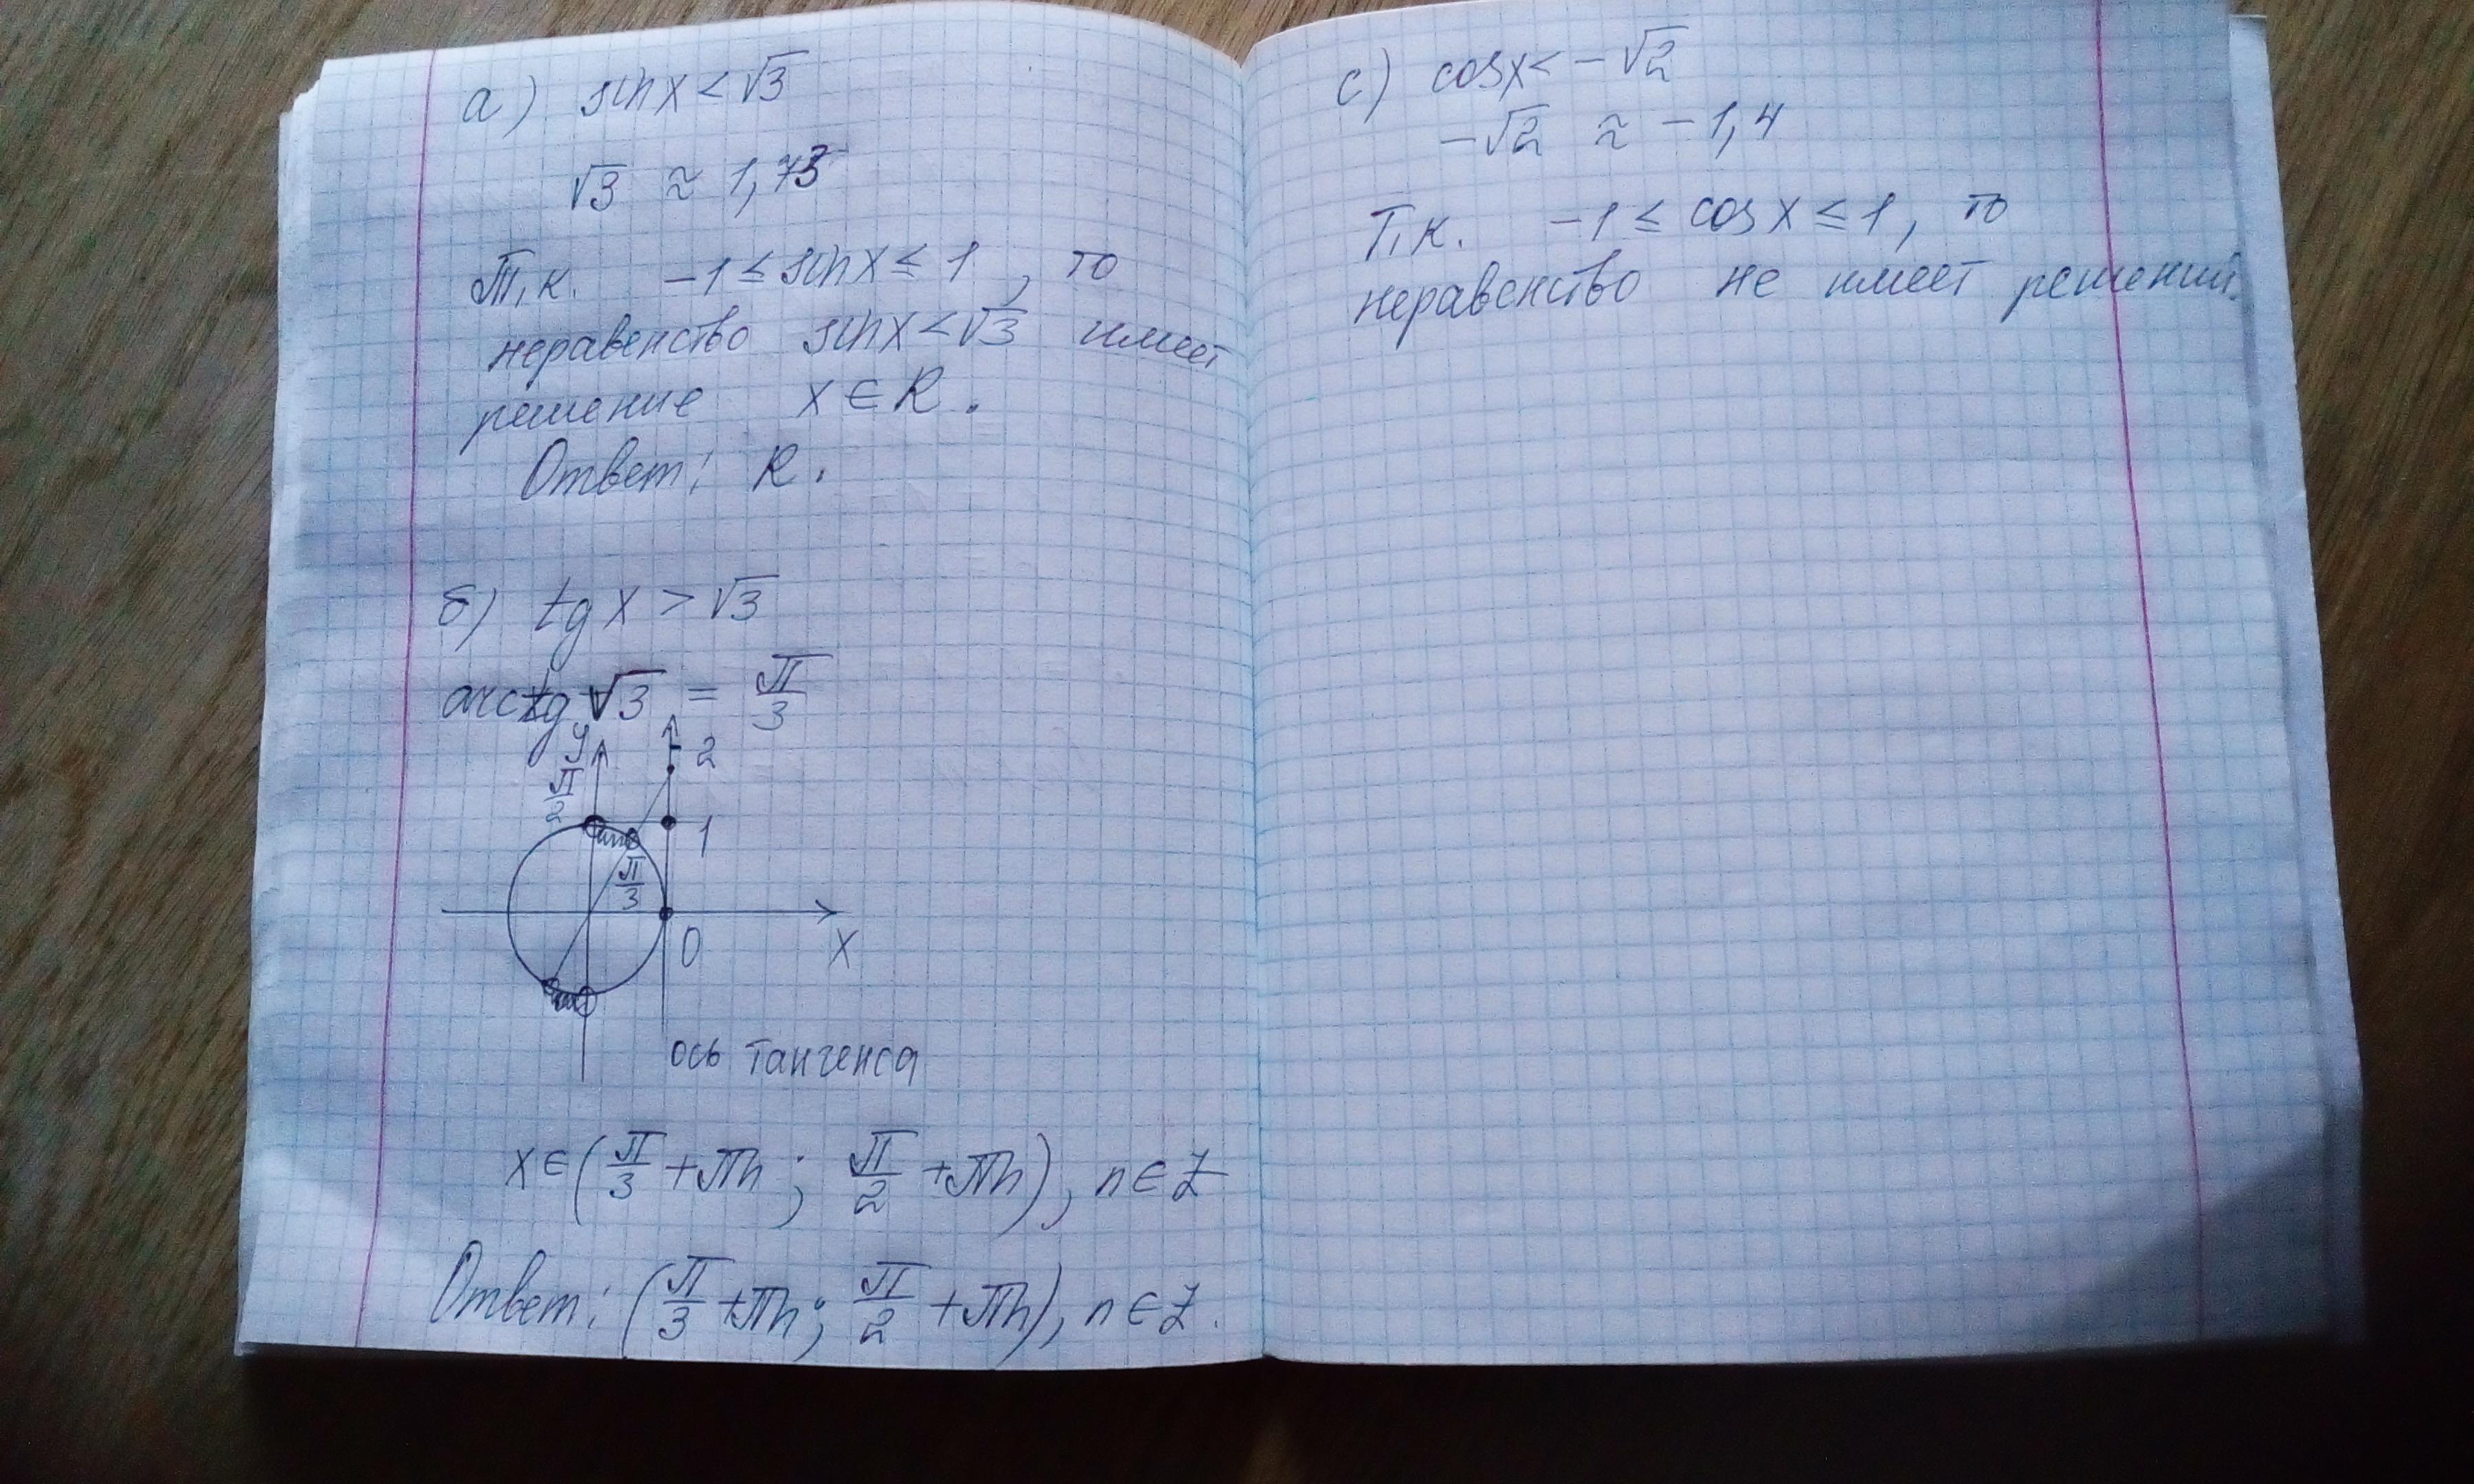 а) sin x < √3
√3 ≈ 1,73
Т.к. -1 ≤ sin x ≤ 1, то
неравенство sin x < √3 имеет
решение x ∈ R.
Ответ: R.
б) tg x > √3
arctg √3 = π/3
y
2
π/2
1
π/3
0
x
ось тангенса
x ∈ (π/3 + πn; π/2 + πn), n ∈ Z
Ответ: (π/3 + πn; π/2 + πn), n ∈ Z.
с) cos x < -√2
-√2 ≈ -1,4
Т.к. -1 ≤ cos x ≤ 1, то
неравенство не имеет решений.